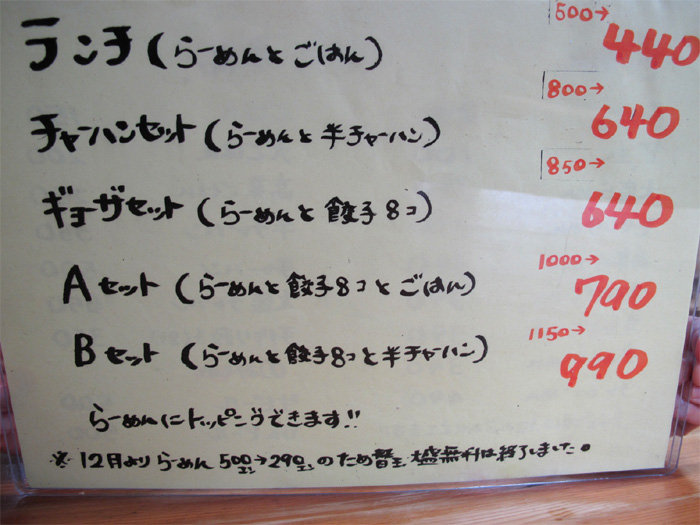 ランチ(らーめんとごはん) 500→ 440
チャーハンセット(らーめんと半チャーハン) 800→ 640
ギョーザセット(らーめんと餃子8コ) 850→ 640
Aセット(らーめんと餃子8コとごはん) 1000→ 790
Bセット(らーめんと餃子8コと半チャーハン) 1150→ 990
らーめんにトッピングできます!!
※12月より らーめん 500円→290円のため替玉大盛無料は終了しました。